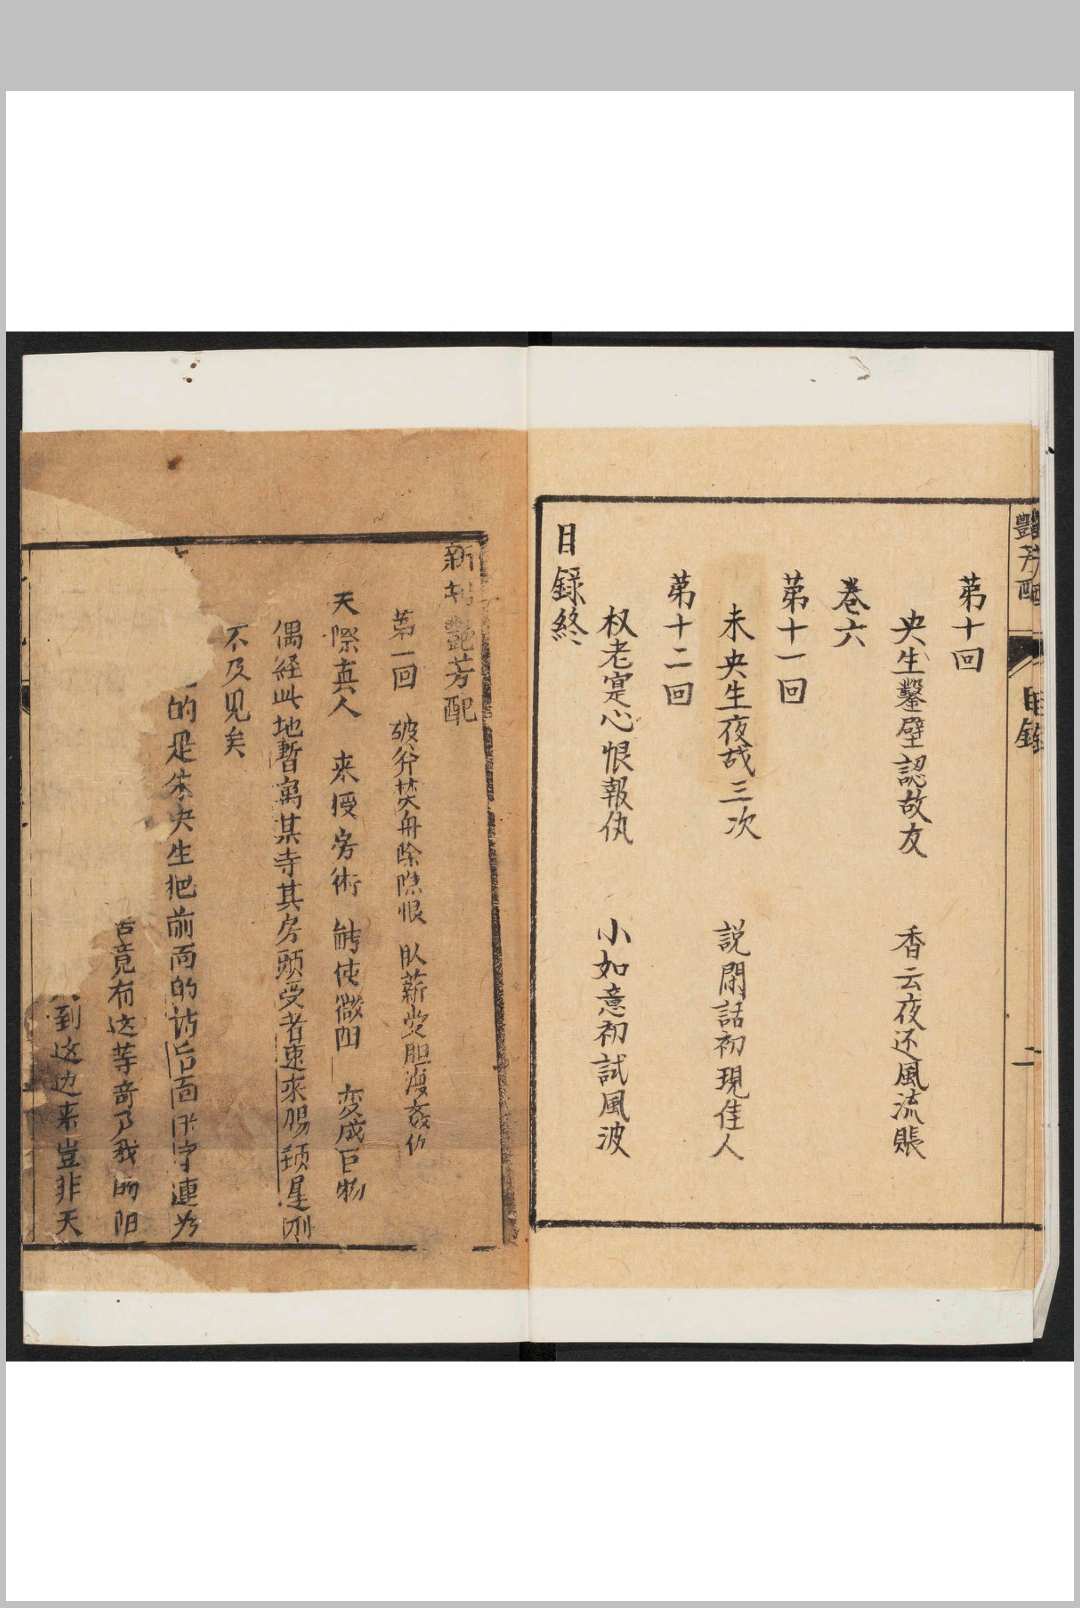 艷芳配
目錄
第十回
央生鑿壁認故友 香云夜还風流賬
卷六
第十一回
未央生夜戏三次 説閑話初現佳人
第十二回
权老寔心恨報仇 小如意初試風波
目錄終
新刊艷芳配
第一回 破釜焚舟除隐恨 臥薪尝胆復姦仇
天際真人 来授房術 能使微阳 変成巨物
偶経此地暫寓某寺其房頭受者速來賜頚遅则
不及见矣
的是朱央生把前面的詩后面字連为
竟有这等奇乃我的阳
到这边来豈非天